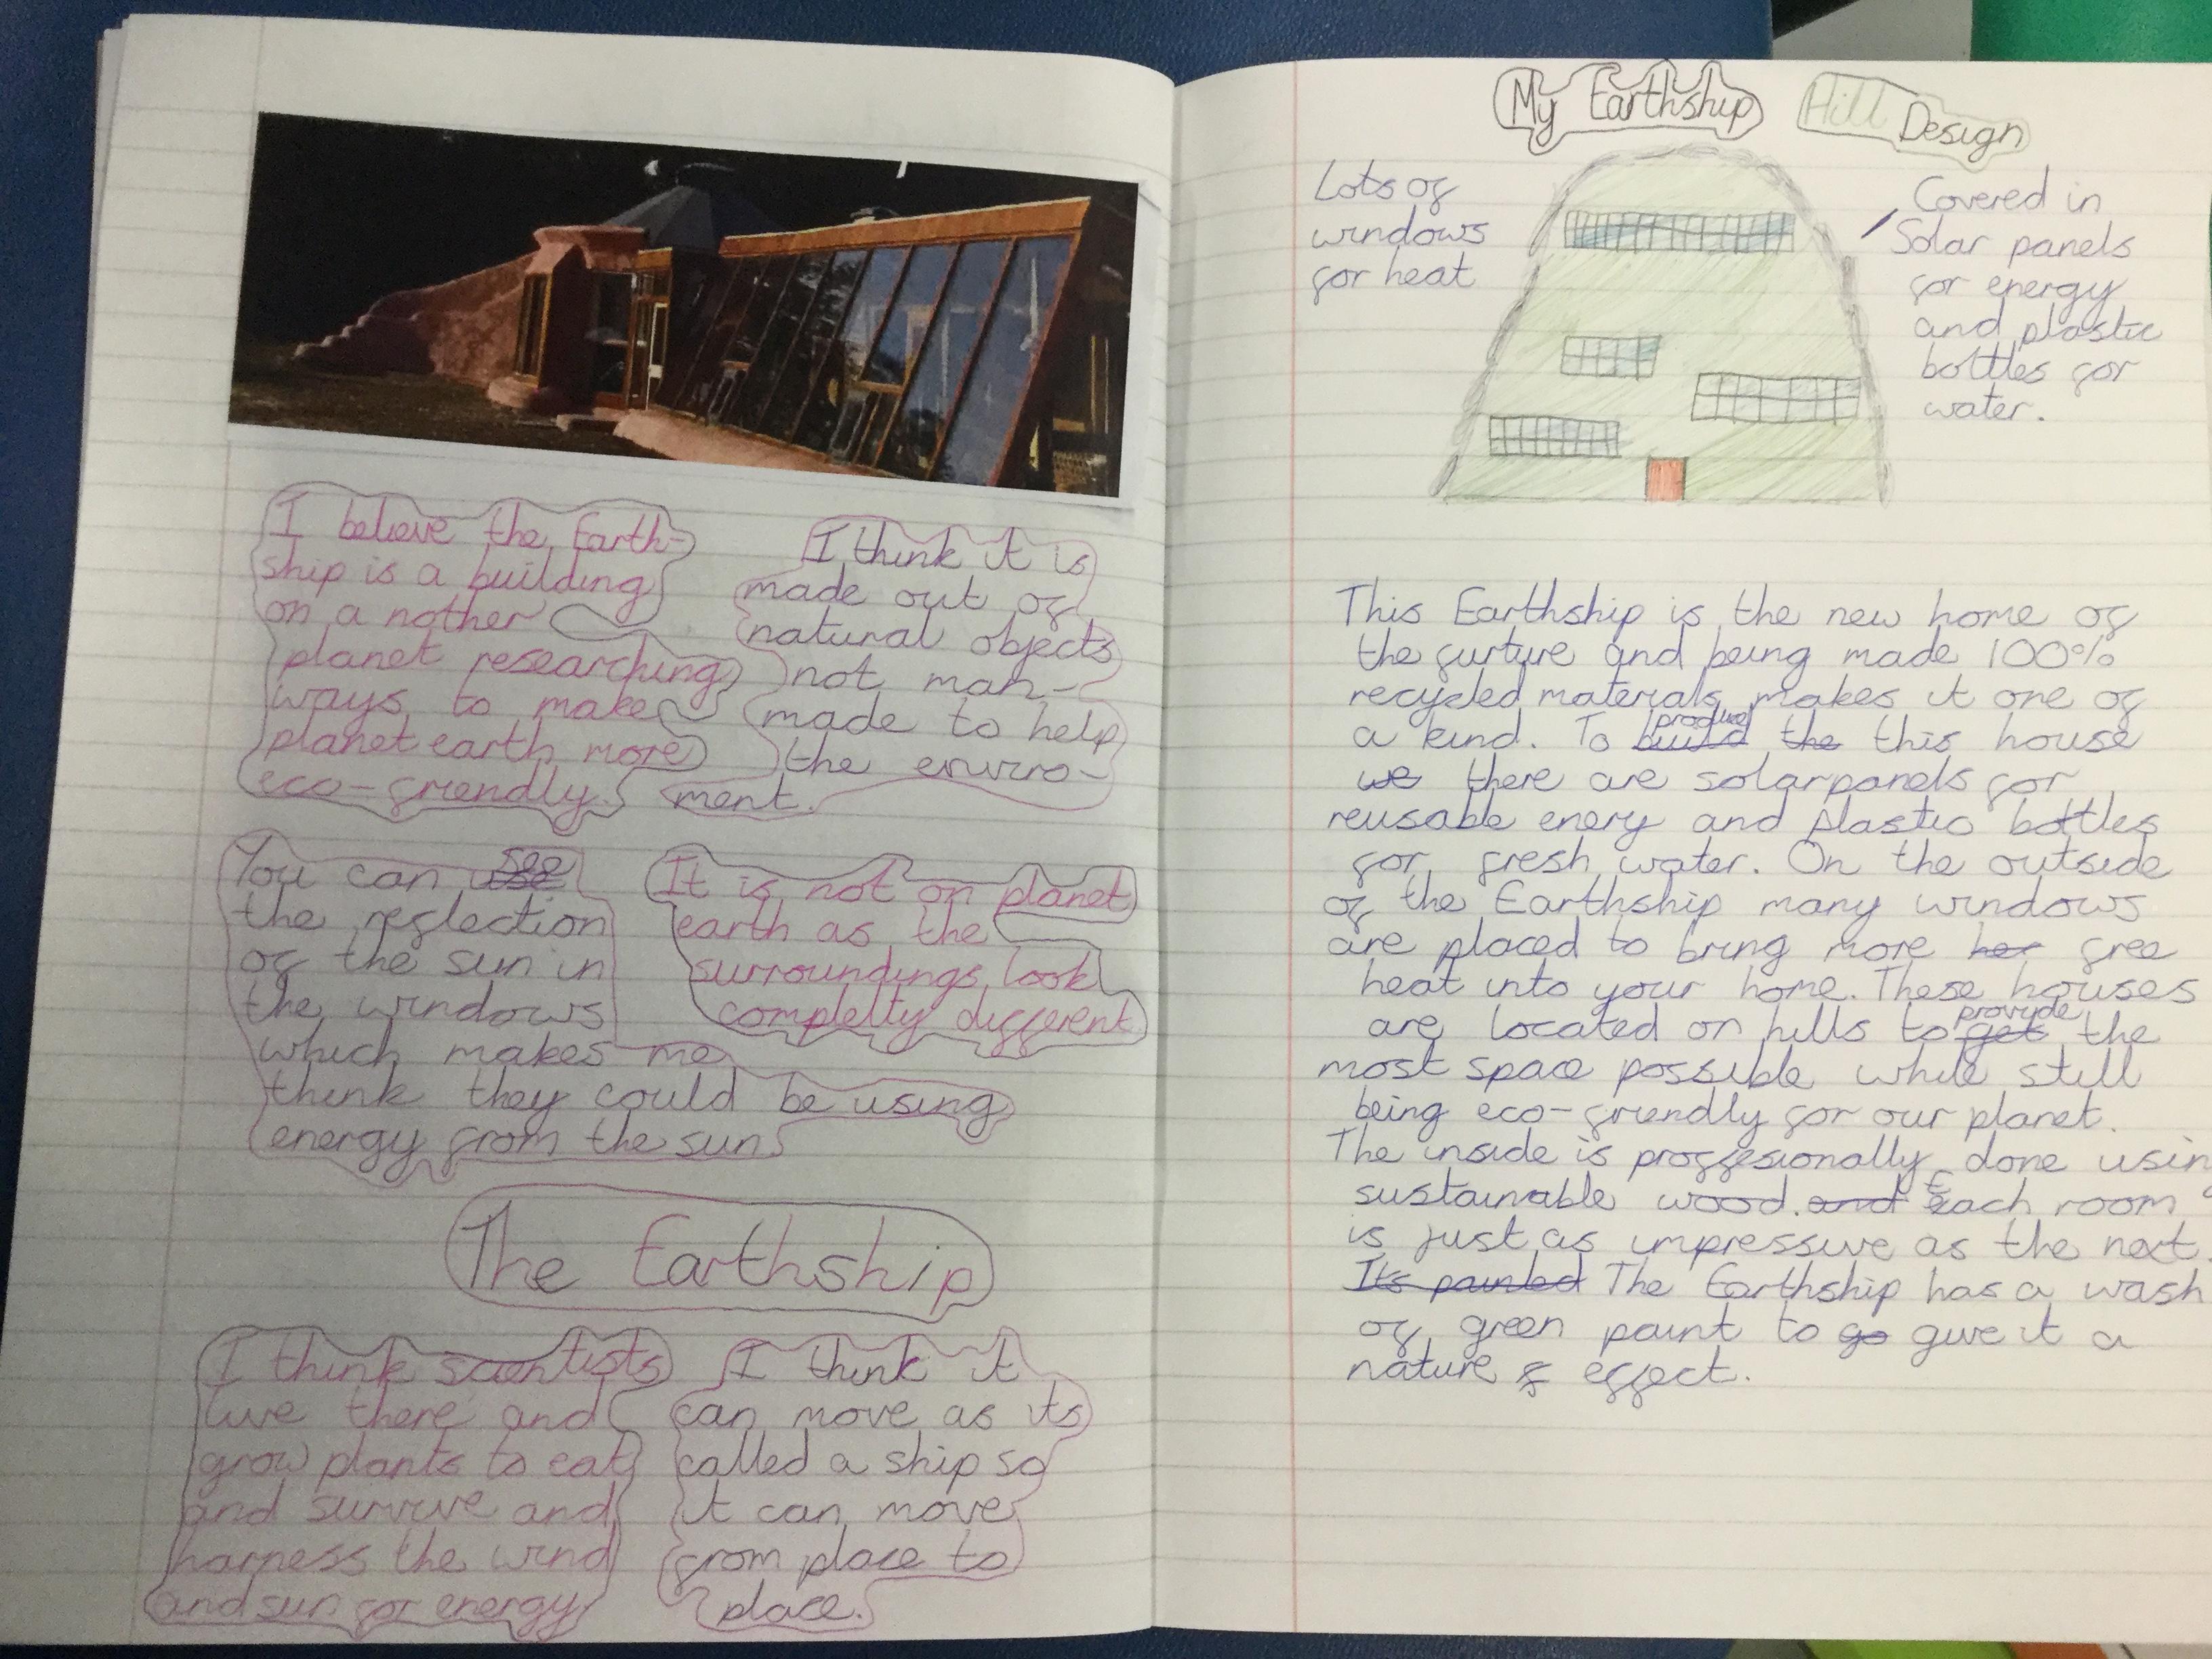 I believe the Earth-
ship is a building
on a nother
planet researching
ways to make
planet earth more
eco-friendly.
I think it is
made out of
natural objects
not man-
made to help
the enviro-
ment.
You can use see
the reflection
of the sun in
the windows
which makes me
think they could be using
energy from the sun
It is not on planet
earth as the
surroundings look
completty different
The Earthship
I think scientists
live there and
grow plants to eat
and survive and
harness the wind
and sun for energy
I think it
can move as its
called a ship so
it can move
from place to
place.
My Earthship Hill Design
Lots of
windows
for heat
Covered in
Solar panels
for energy
and plastic
bottles for
water.
This Earthship is the new home of
the furture and being made 100%
recycled materials makes it one of
a kind. To build produce the this house
we there are solarpanels for
reusable enery and plastic bottles
for fresh water. On the outside
of the Earthship many windows
are placed to bring more hea free
heat into your home. These houses
are located on hills to get provide the
most space possible while still
being eco-friendly for our planet.
The inside is proffesionally done using
sustainable wood. and Each room
is just as impressive as the next.
Its painted The Earthship has a wash
of green paint to go give it a
nature f effect.